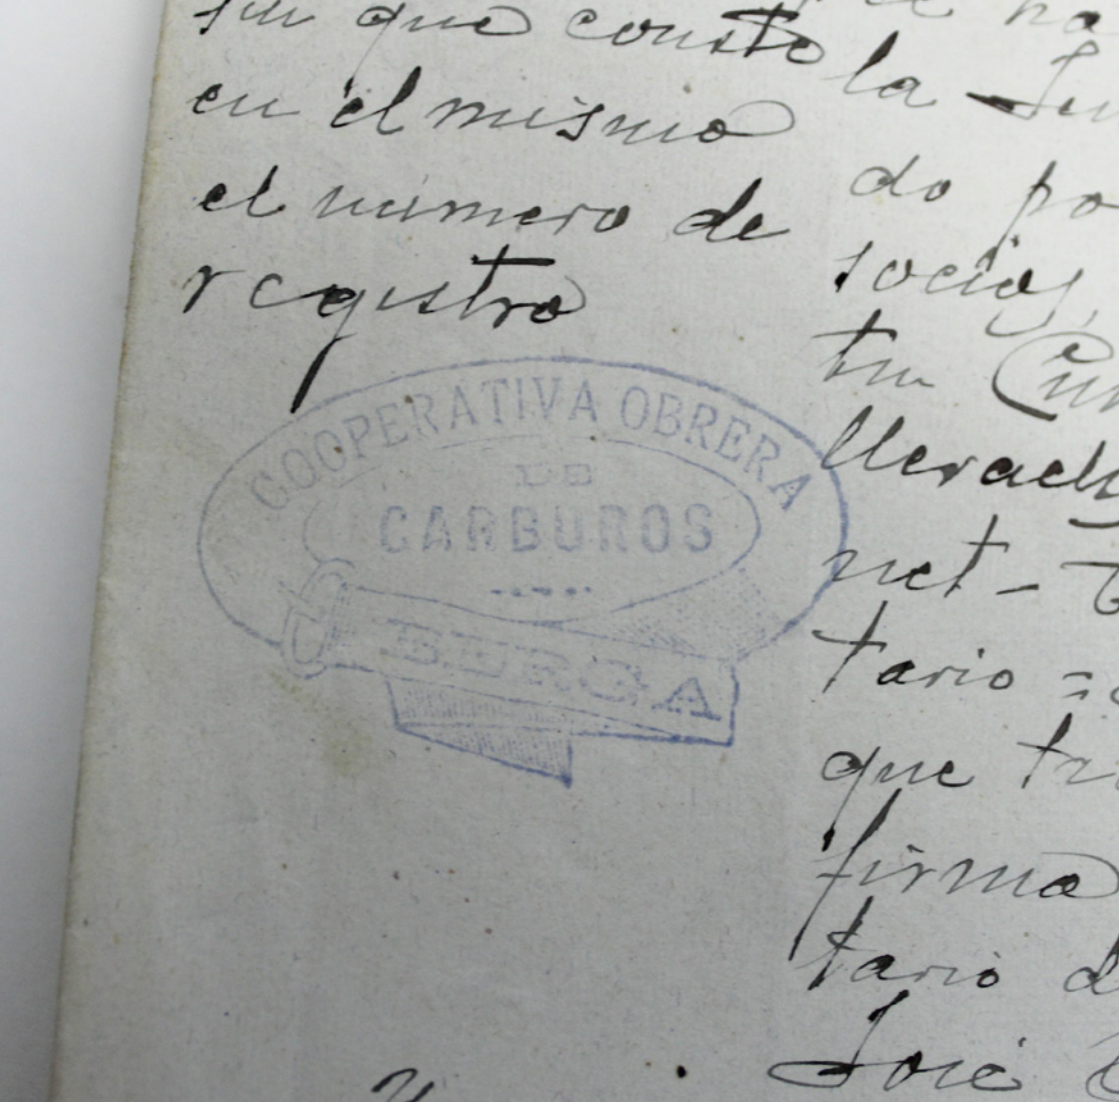 sin que conste
en el mismo
el número de
registro
COOPERATIVA OBRERA
DE
CARBUROS
BERGA
la
do po
socios,
net -
tario =
que
firma
tario d
José